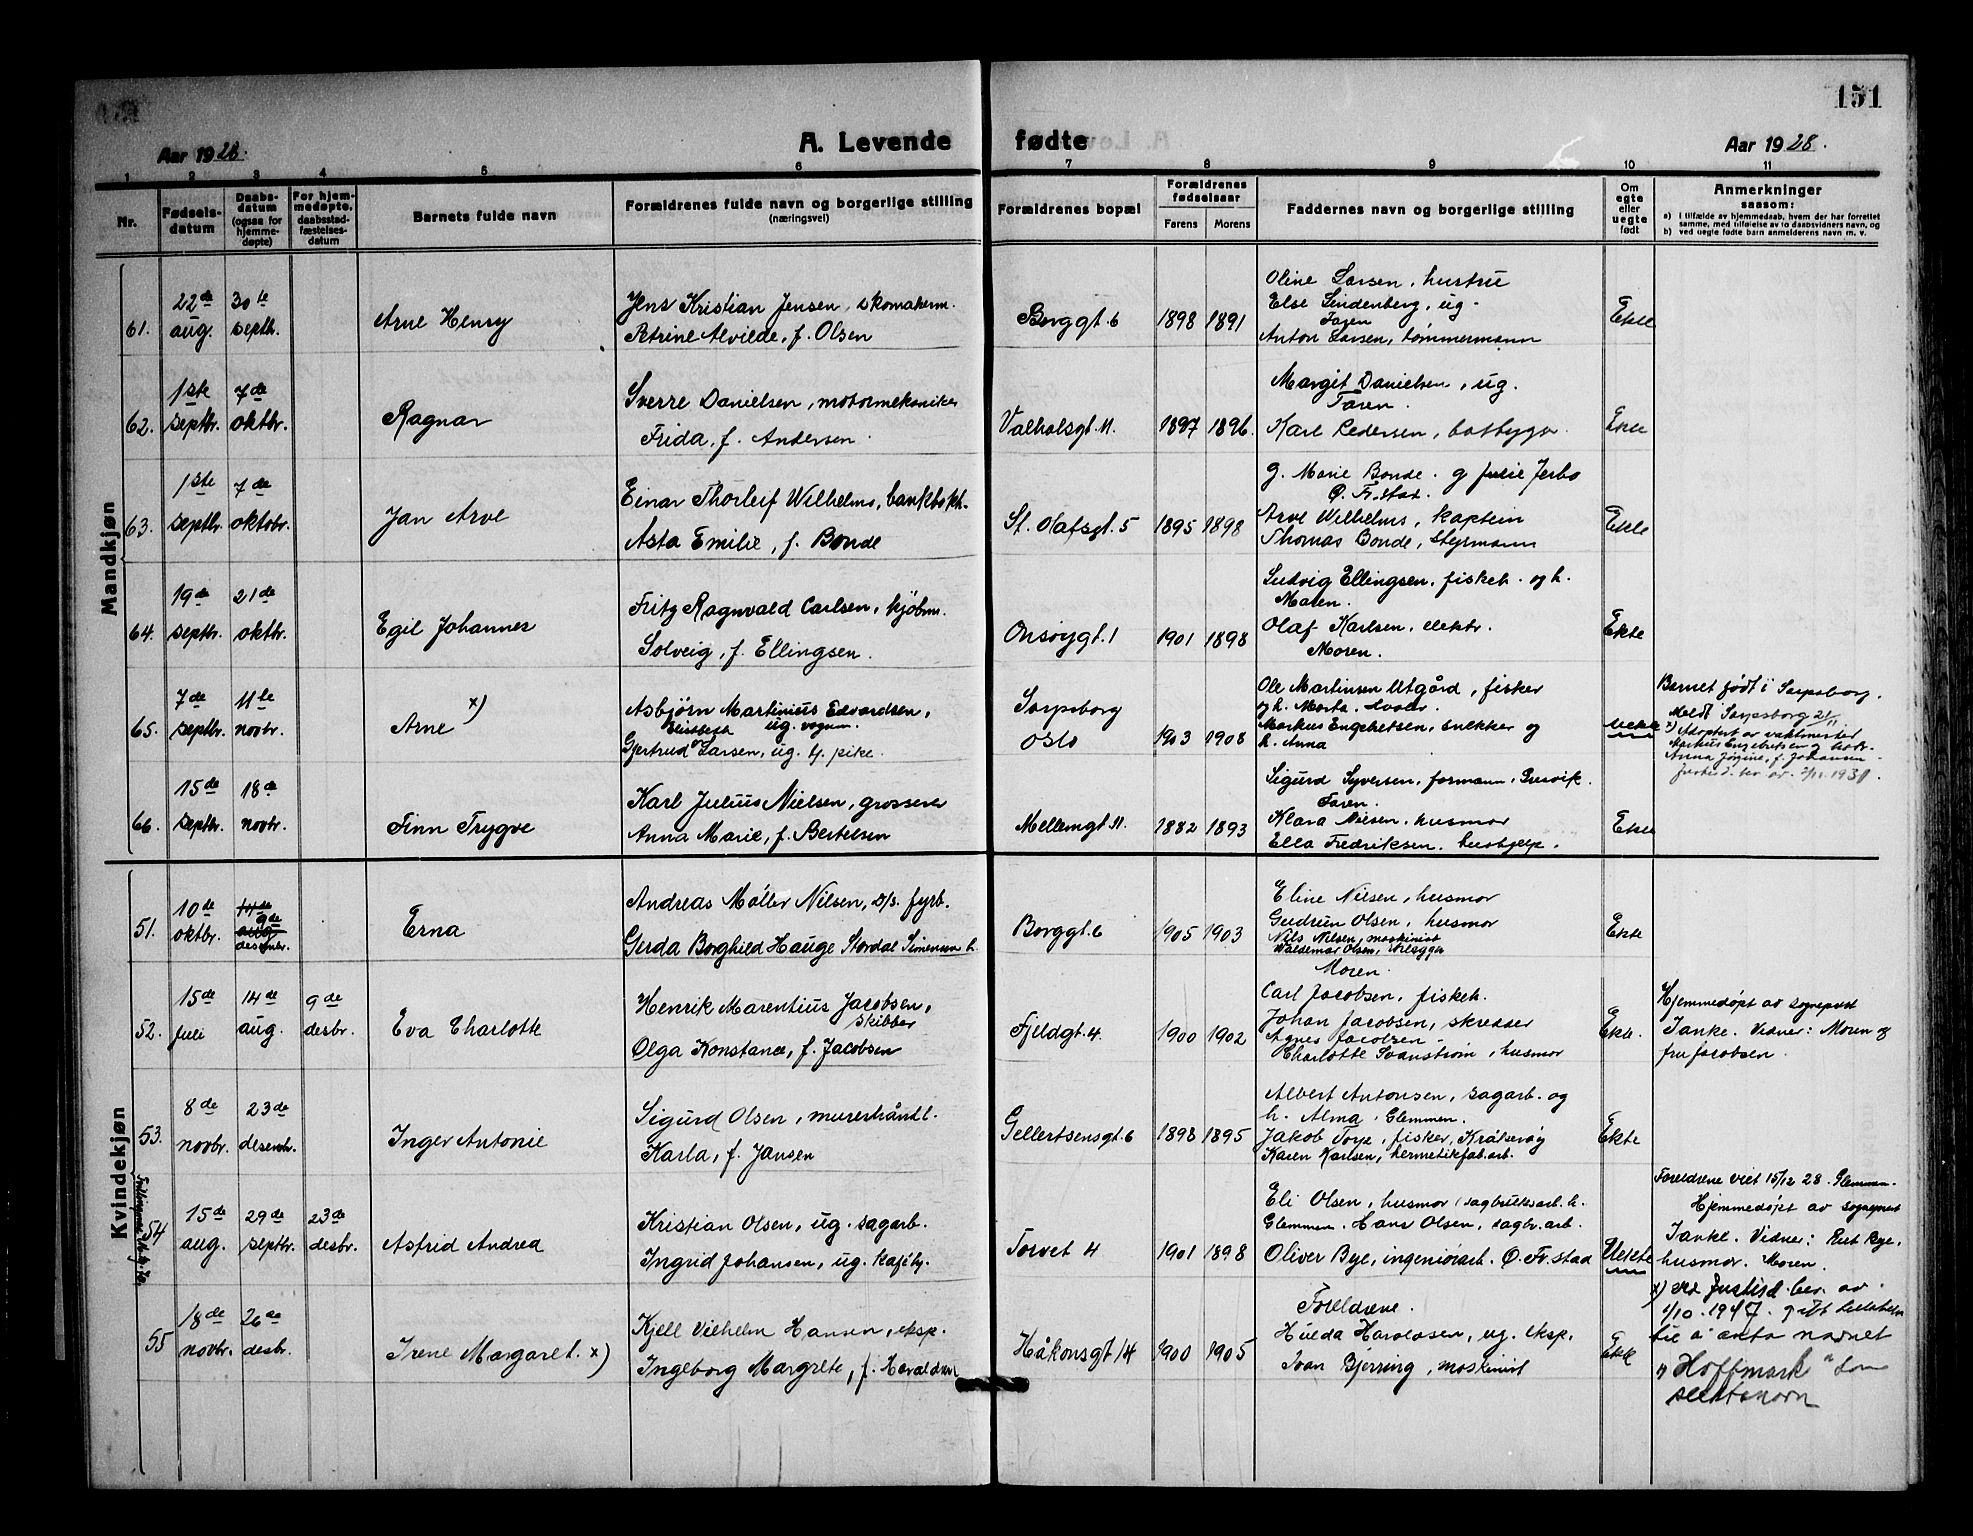 151
Aar 1928.
A. Levende fødte
Aar 1928.
1 2 3 4 5 6 7 8 9 10 11
Nr.
Fødsels-
datum
Daabs-
datum
(ogsaa for
hjemme-
døpte)
For hjem-
medøpte.
daabsstad-
fæstelses-
datum
Barnets fulde navn
Forældrenes fulde navn og borgerlige stilling
(næringsvei)
Forældrenes bopæl
Forældrenes
fødselsaar
Farens Morens
Faddernes navn og borgerlige stilling
Om
egte
eller
uegte
født
Anmerkninger
saasom:
a) I tilfælde av hjemmedaab, hvem der har forrettet
samme, med tilføielse av to daabsvidners navn, og
b) ved uegte fødte barn anmelderens navn m. v.
Mandkjøn
61.
22de
aug.
30te
septbr.
Arne Henry
Jens Kristian Jensen, skomakerm.
Petrine Alvilde, f. Olsen
Borggt. 6
1898 1891
Oline Larsen, hustru
Else Lindenberg, ug.
Faren
Anton Larsen, tømmermann
Ekte
62.
1ste
septbr.
7de
oktbr.
Ragnar
Sverre Danielsen, motormekaniker
Frida, f. Andersen.
Valhalsgt. 11.
1897 1896.
Margit Danielsen, ug.
Faren.
Karl Pedersen, batbygg.
Ekte
63.
1ste
septbr.
7de
oktobr.
Jan Arve
Einar Thorleif Wilhelms, bankbokh.
Asta Emilie, f. Bonde
St. Olafsgt. 5
1895 1898
G. Marie Bonde. g Julie Jerbo
Ø. Fr.stad.
Arve Wilhelms, kaptein
Thomas Bonde, styrmann
Ekte
64.
19de
septbr.
21de
oktbr.
Egil Johannes
Fritz Ragnvald Carlsen, kjøbm.
Solveig, f. Ellingsen.
Onsøygt. 1
1901 1898
Ludvig Ellingsen, fiskeh. og h.
Maren.
Olaf Karlsen, elektr.
Moren.
Ekte
65.
7de
septbr.
11te
novbr.
Arne x)
Asbjørn Martinius Edvardsen,
ug. vognm.
Elisabeth
Gjertrud Larsen, ug. tj. pike.
Sarpsborg
Oslo
1903 1908
Ole Martinsen Utgård, fisker
og h. Marta. Hvaler.
Markus Engebretsen, snekker og
h. Anna
Uekte
Barnet født i Sarpsborg.
Meldt Sarpsborg 21/11.
x) Adoptert av vaktmester
Markus Engebretsen og hustr.
Anna Jørgine, f. Johansen
66.
15de
septbr.
18de
novbr.
Finn Trygve
Karl Julius Nielsen, grosserer
Anna Marie, f. Bertelsen
Mellemgt. 11.
1882 1893
Sigurd Syversen, formann, Gresvik.
Faren.
Klara Nielsen, husmor
Ella Fredriksen, hushjelp.
Ekte
Kvindekjøn
51.
10de
oktbr.
9de
desembr.
Erna
Andreas Møller Nilsen, D/S. fyrb.
Gerda Borghild Hauge Stordal Simensen h.
Borggt. 6
1905 1903
Eline Nilsen, husmor
Gudrun Olsen, husmor
Nils Nilsen, maskinist
Valdemar Olsen,
Moren.
Ekte
52.
15de
juli
14de
aug.
9de
desbr.
Eva Charlotte
Henrik Marentius Jacobsen,
skibber
Olga Konstance, f. Jacobsen
Fjeldgt. 4.
1900 1902
Carl Jacobsen, fiskeh.
Johan Jacobsen, skredder
Agnes Jacobsen
Charlotte Svanstrøm, husmor
Ekte.
Hjemmedøpt av sogneprest
Tanke. Vidner: Moren og
fru Jacobsen.
53.
8de
novbr.
23de
desembr.
Inger Antonie
Sigurd Olsen, murerhåndl.
Karla, f. Jansen
Gellertsensgt. 6
1898 1895
Albert Antonsen, sagarb. og
h. Alma, Glemmen.
Jakob Torp, fisker, Kråkerøy
Karen Karlsen, hermetikfab.arb.
Ekte
54
15de
aug.
29de
septbr.
23de
desbr.
Astrid Andrea
Kristian Olsen, ug. sagarb.
Ingrid Johansen, ug. kaféhj.
Torvet 4
1901 1898
Eli Olsen, husmor, sagbruksarb. h.
Glemmen. Hans Olsen, sagbr.arb.
Oliver Bye, ingeniørarb. Ø. Fr.stad
Uekte
Foreldrene viet 15/12 28. Glemmen.
Hjemmedøpt av sogneprest
Tanke. Vidner: Bye,
husmor. Moren.
55
18de
novbr.
26de
desbr.
Irene Margaret. x)
Kjell Vilhelm Hansen, eksp.
Ingeborg Margrete, f. Haraldsen
Håkonsgt 14
1900 1905
Foreldrene.
Hulda Haraldsen, ug. eksp.
Ivan Bjerring, maskinist
Ekte
x) Ved Justisd. bev. av
1/10. 1947. gitt
til å anta navnet
"Hoffmark" som
slektsnavn